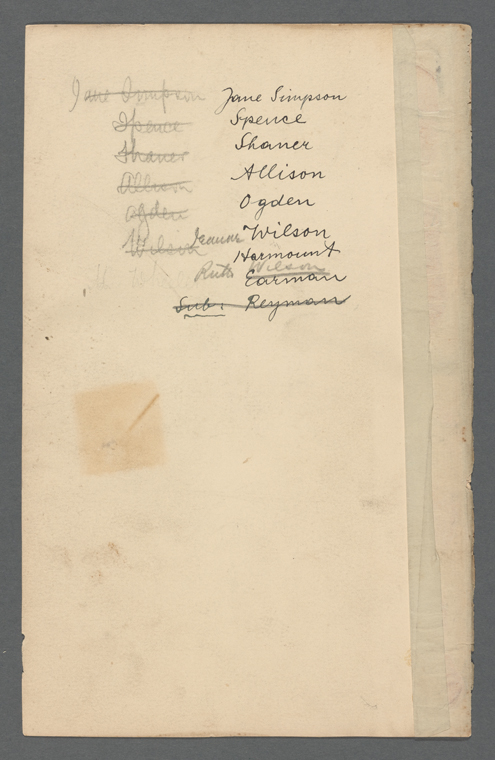 Jane Simpson Jane Simpson
Spence Spence
Shaner Shaner
Allison Allison
Ogden Ogden
Wilson Jeanne Wilson
Harmount
Ruth Wilson
Earman
Sub. Reyman